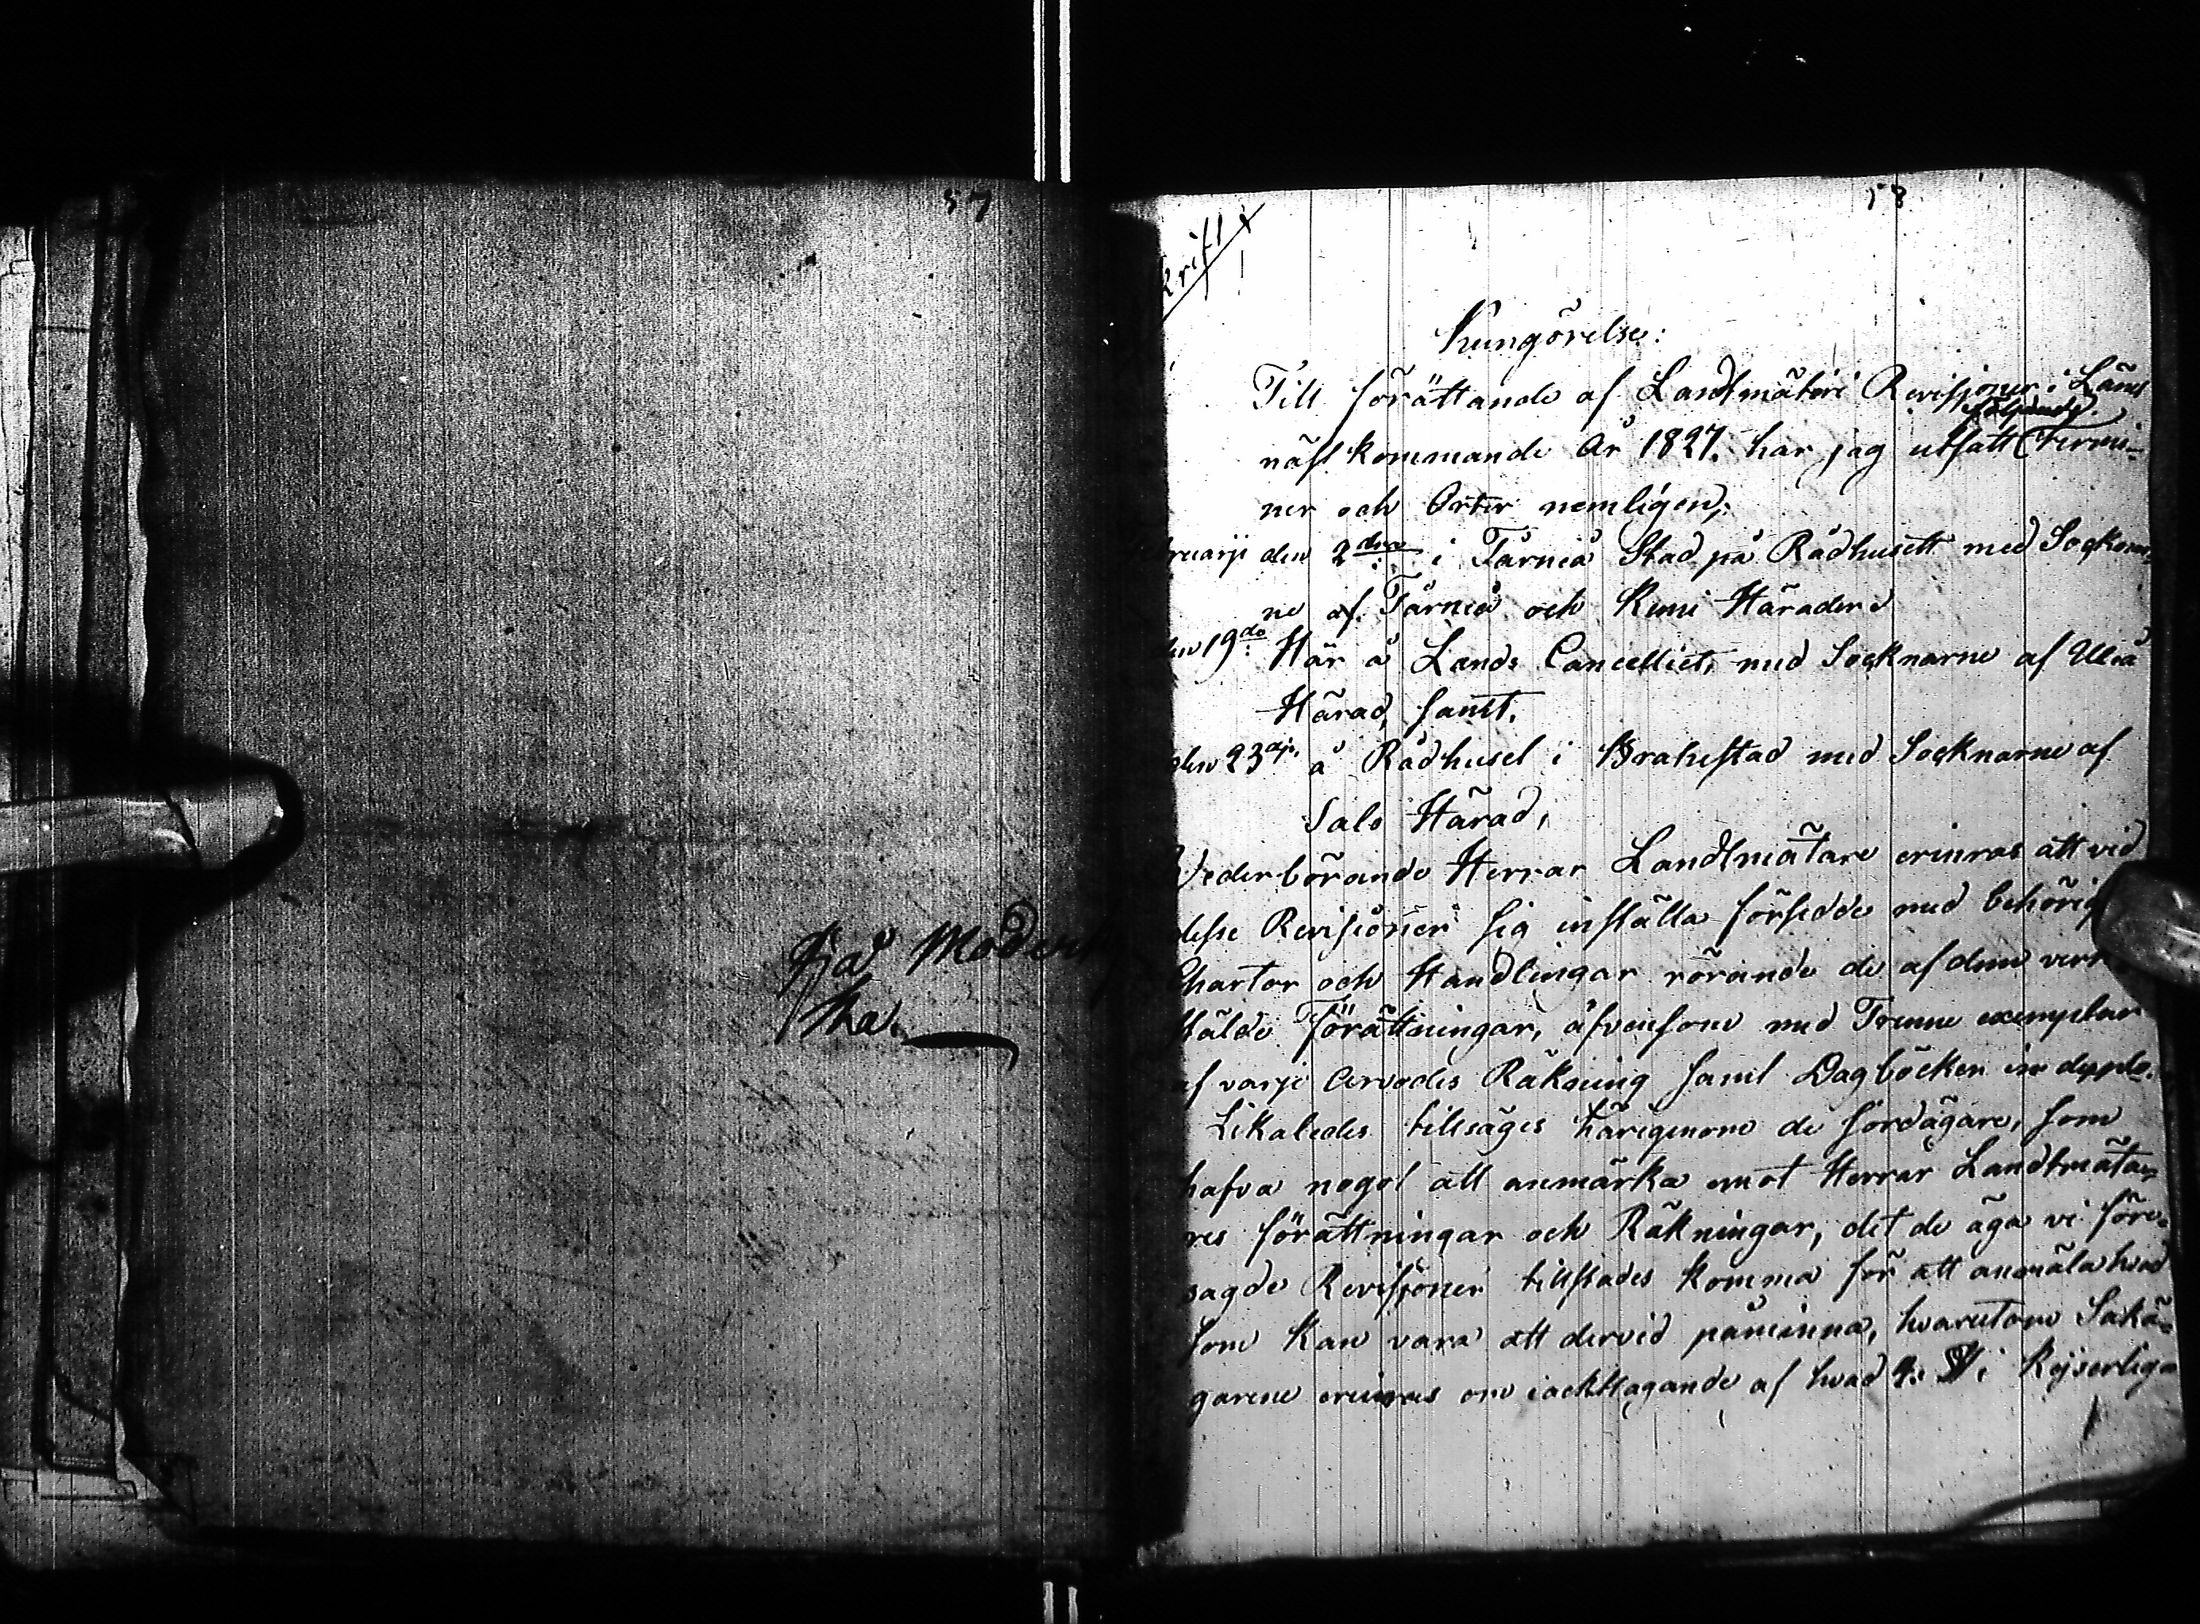 57
58
krift
Kungörelse:
Till förättande af Landtmäteri Revisjoner i Länet
följande
näst kommande år 1827. har jag utsatt Termi-
ner och Orter nemligen,
bruarji den 2dra i Tårneå Stad på Rådhusett med Sockom-
ne af Tårneå och Kemi Härader
den 19de Här å Lands Cancelliet, med Socknarne af Uleå
Härad, samt,
den 23dje å Rådhuset i Brahestad med Socknarne af
Salo Härad,
Vederbörande Herrar Landtmätare erinras att vid
desse Revisioner sig inställa försedde med behörig
Chartor och Handlingar rörande de af dem verk
stälde Förättningar, äfvensom med Trenne exemplar
af varje Arvodes Räkning samt Dagböcker in duplo.
Likaledes tillsäges härigenom de Jordägare, som
hafva nogot att anmärka emot Herrar Landtmäta-
res förättningar och Räkningar, det de äga vi före-
sagde Revisjoner tillstädes komma för att anmäla hvad
som kan vara att dervid påminna, hvarutom Sakä-
garene erinras om iackttagande af hvad 4. § i Kejserliga